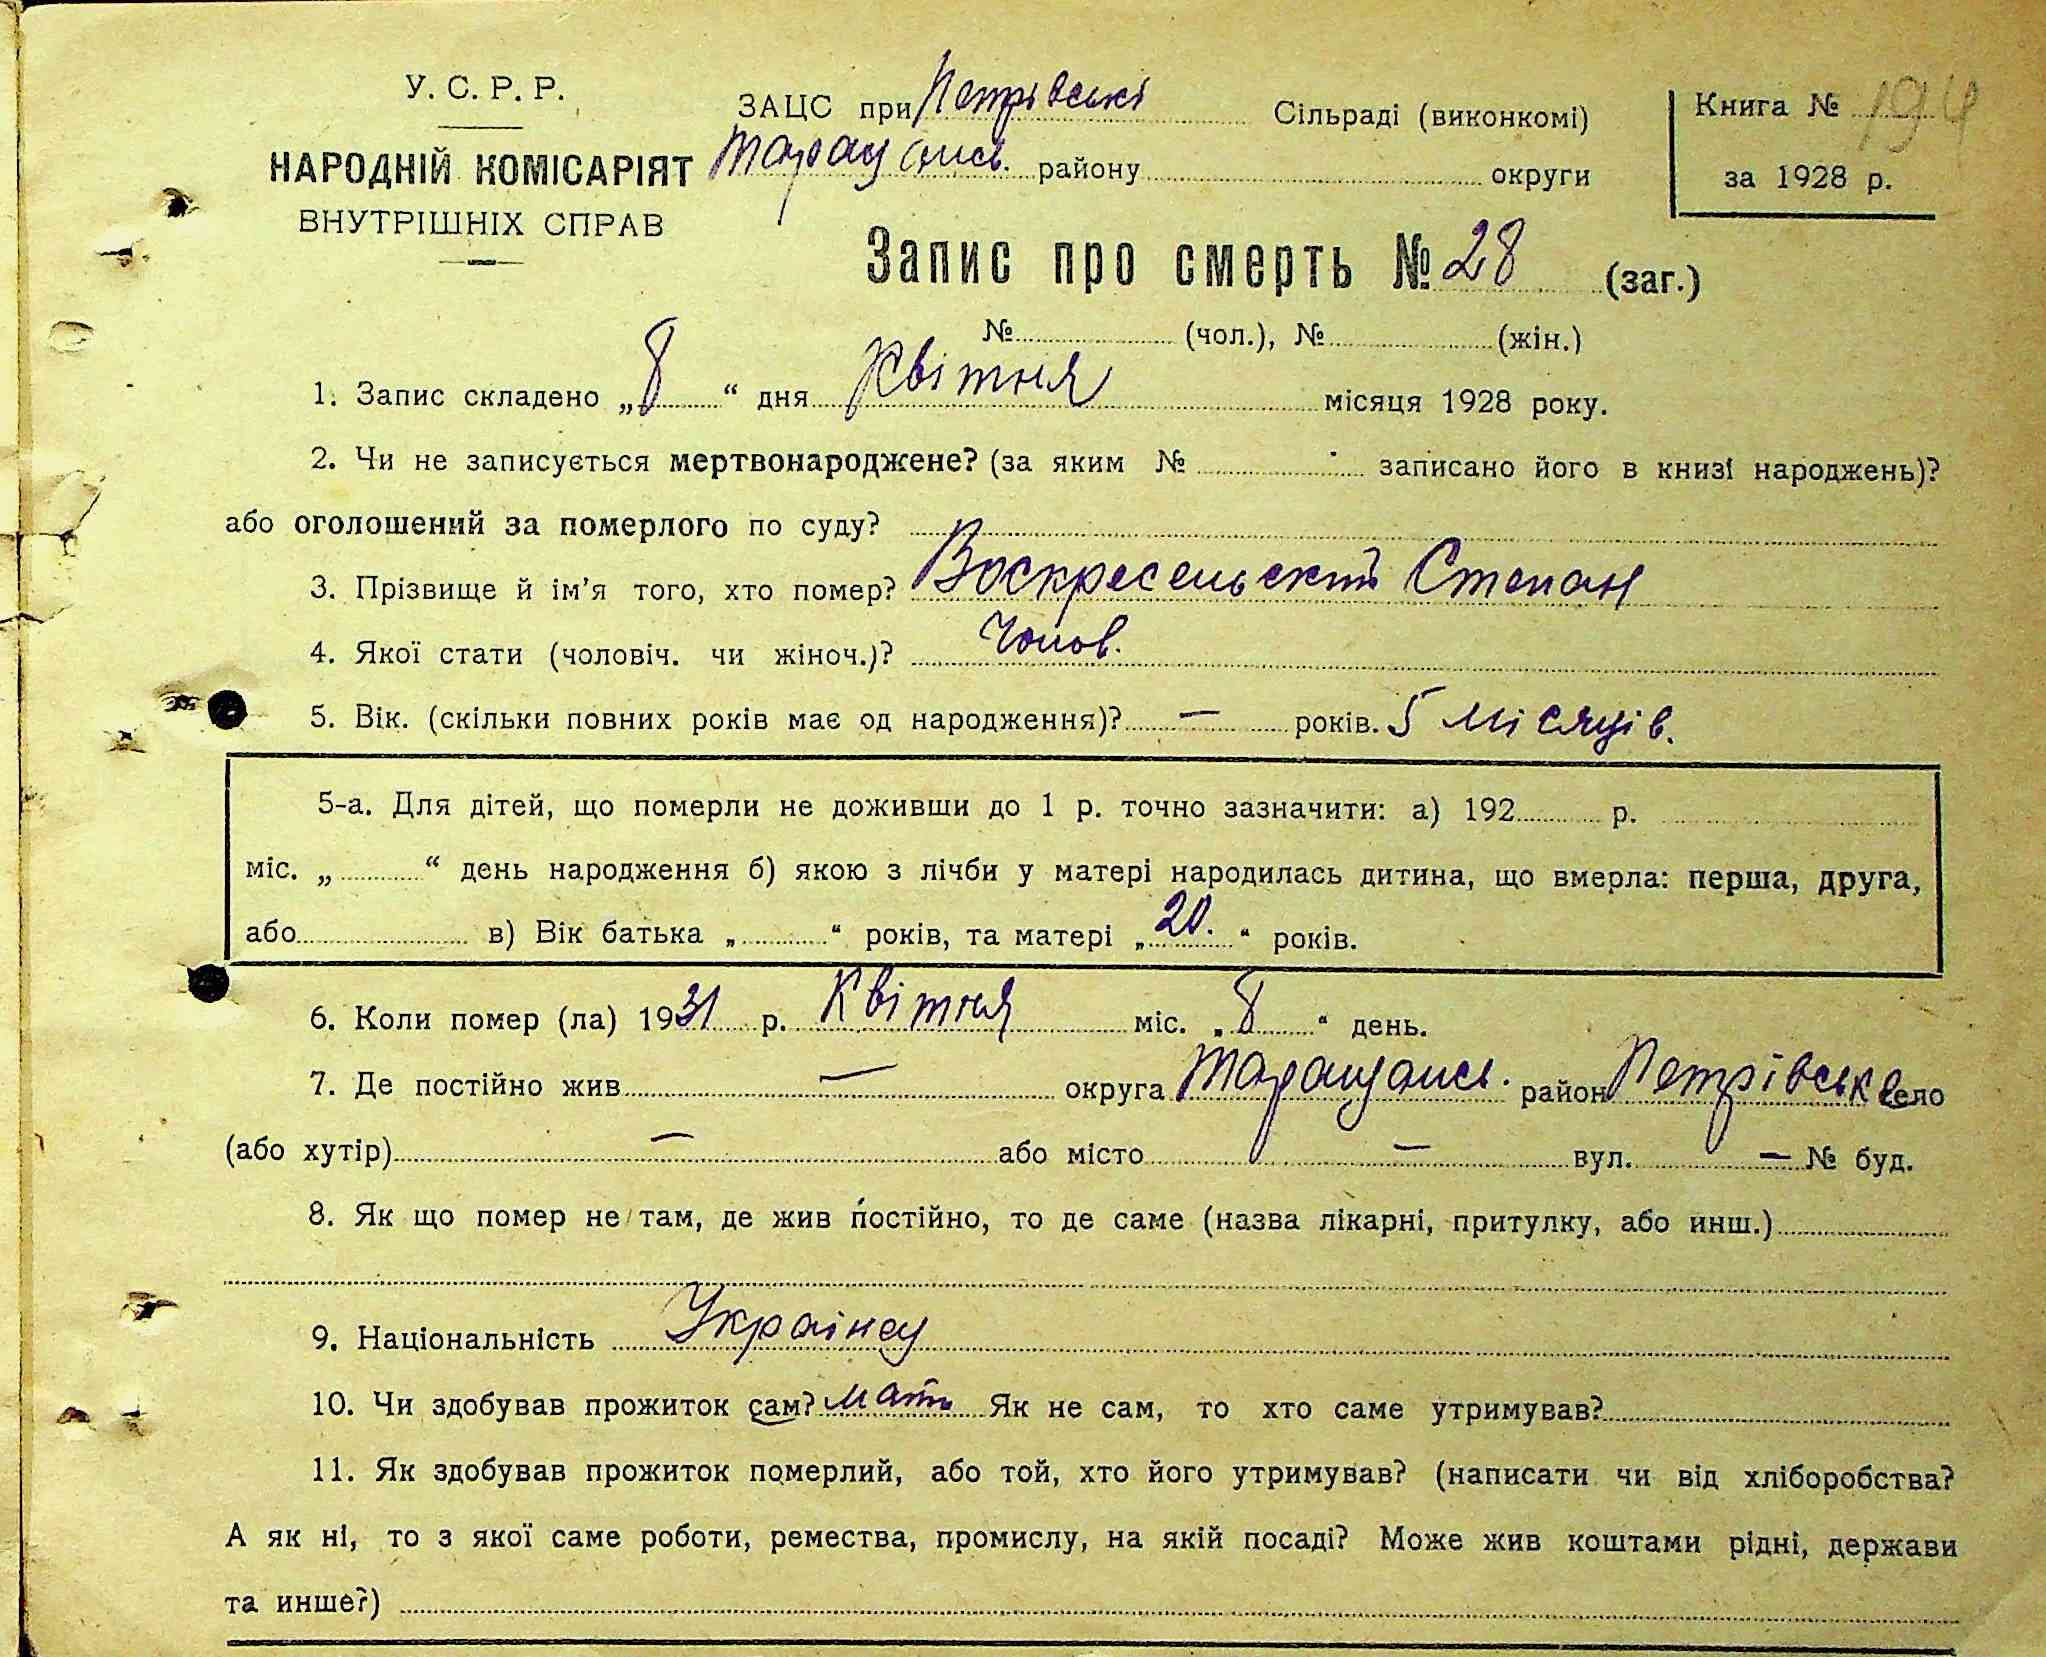 У. С. Р. Р.
НАРОДНІЙ КОМІСАРІЯТ
ВНУТРІШНІХ СПРАВ
ЗАЦС при Петрівській Сільраді (виконкомі)
Таращанськ. району округи
Книга № 194
за 1928 р.
Запис про смерть № 28 (заг.)
№ (чол.), № (жін.)
1. Запис складено „8“ дня Квітня місяця 1928 року.
2. Чи не записується мертвонароджене? (за яким № записано його в книзі народжень)?
або оголошений за померлого по суду?
3. Прізвище й ім'я того, хто помер? Воскресенський Степан
4. Якої стати (чоловіч. чи жіноч.)? Чолов.
5. Вік. (скільки повних років має од народження)? — років. 5 місяців.
5-а. Для дітей, що померли не доживши до 1 р. точно зазначити: а) 192 р.
міс. „ “ день народження б) якою з лічби у матері народилась дитина, що вмерла: перша, друга,
або в) Вік батька „ “ років, та матері „20.“ років.
6. Коли помер (ла) 1931 р. Квітня міс. „8“ день.
7. Де постійно жив — округа Таращанськ. район Петрівське село
(або хутір) — або місто — вул. — № буд.
8. Як що помер не там, де жив постійно, то де саме (назва лікарні, притулку, або инш.)
9. Національність Українец
10. Чи здобував прожиток сам? мать Як не сам, то хто саме утримував?
11. Як здобував прожиток померлий, або той, хто його утримував? (написати чи від хліборобства?
А як ні, то з якої саме роботи, ремества, промислу, на якій посаді? Може жив коштами рідні, держави
та инше?)